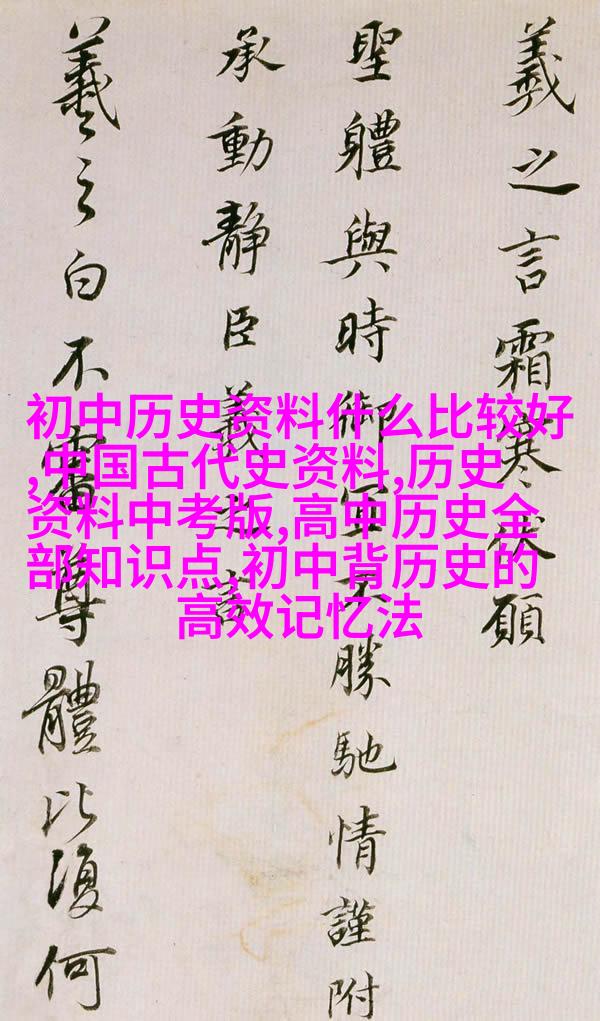 羲之言霜寒伏願
聖體與時御不勝馳情謹附
承動靜臣羲之言
羲之白不審尊體比復何
初中历史资料什么比较好
,中国古代史资料,历史
资料中考版,高中历史全
部知识点,初中背历史的
高效记忆法